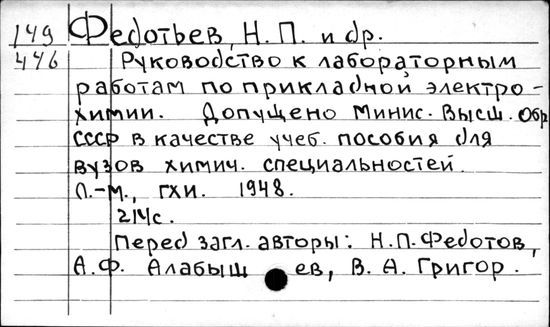 149 Федотьев, Н. П. и др.
446 Руководство к лабораторным
работам по прикладной электро-
химии. Допущено Минис. Высш. обр
СССР в качестве учеб. пособия для
вузов химич. специальностей.
Л.-М., ГХИ. 1948.
214с.
Перед загл. авторы: Н.П. Федотов,
А.Ф. Алабыш ев, В. А. Григор.